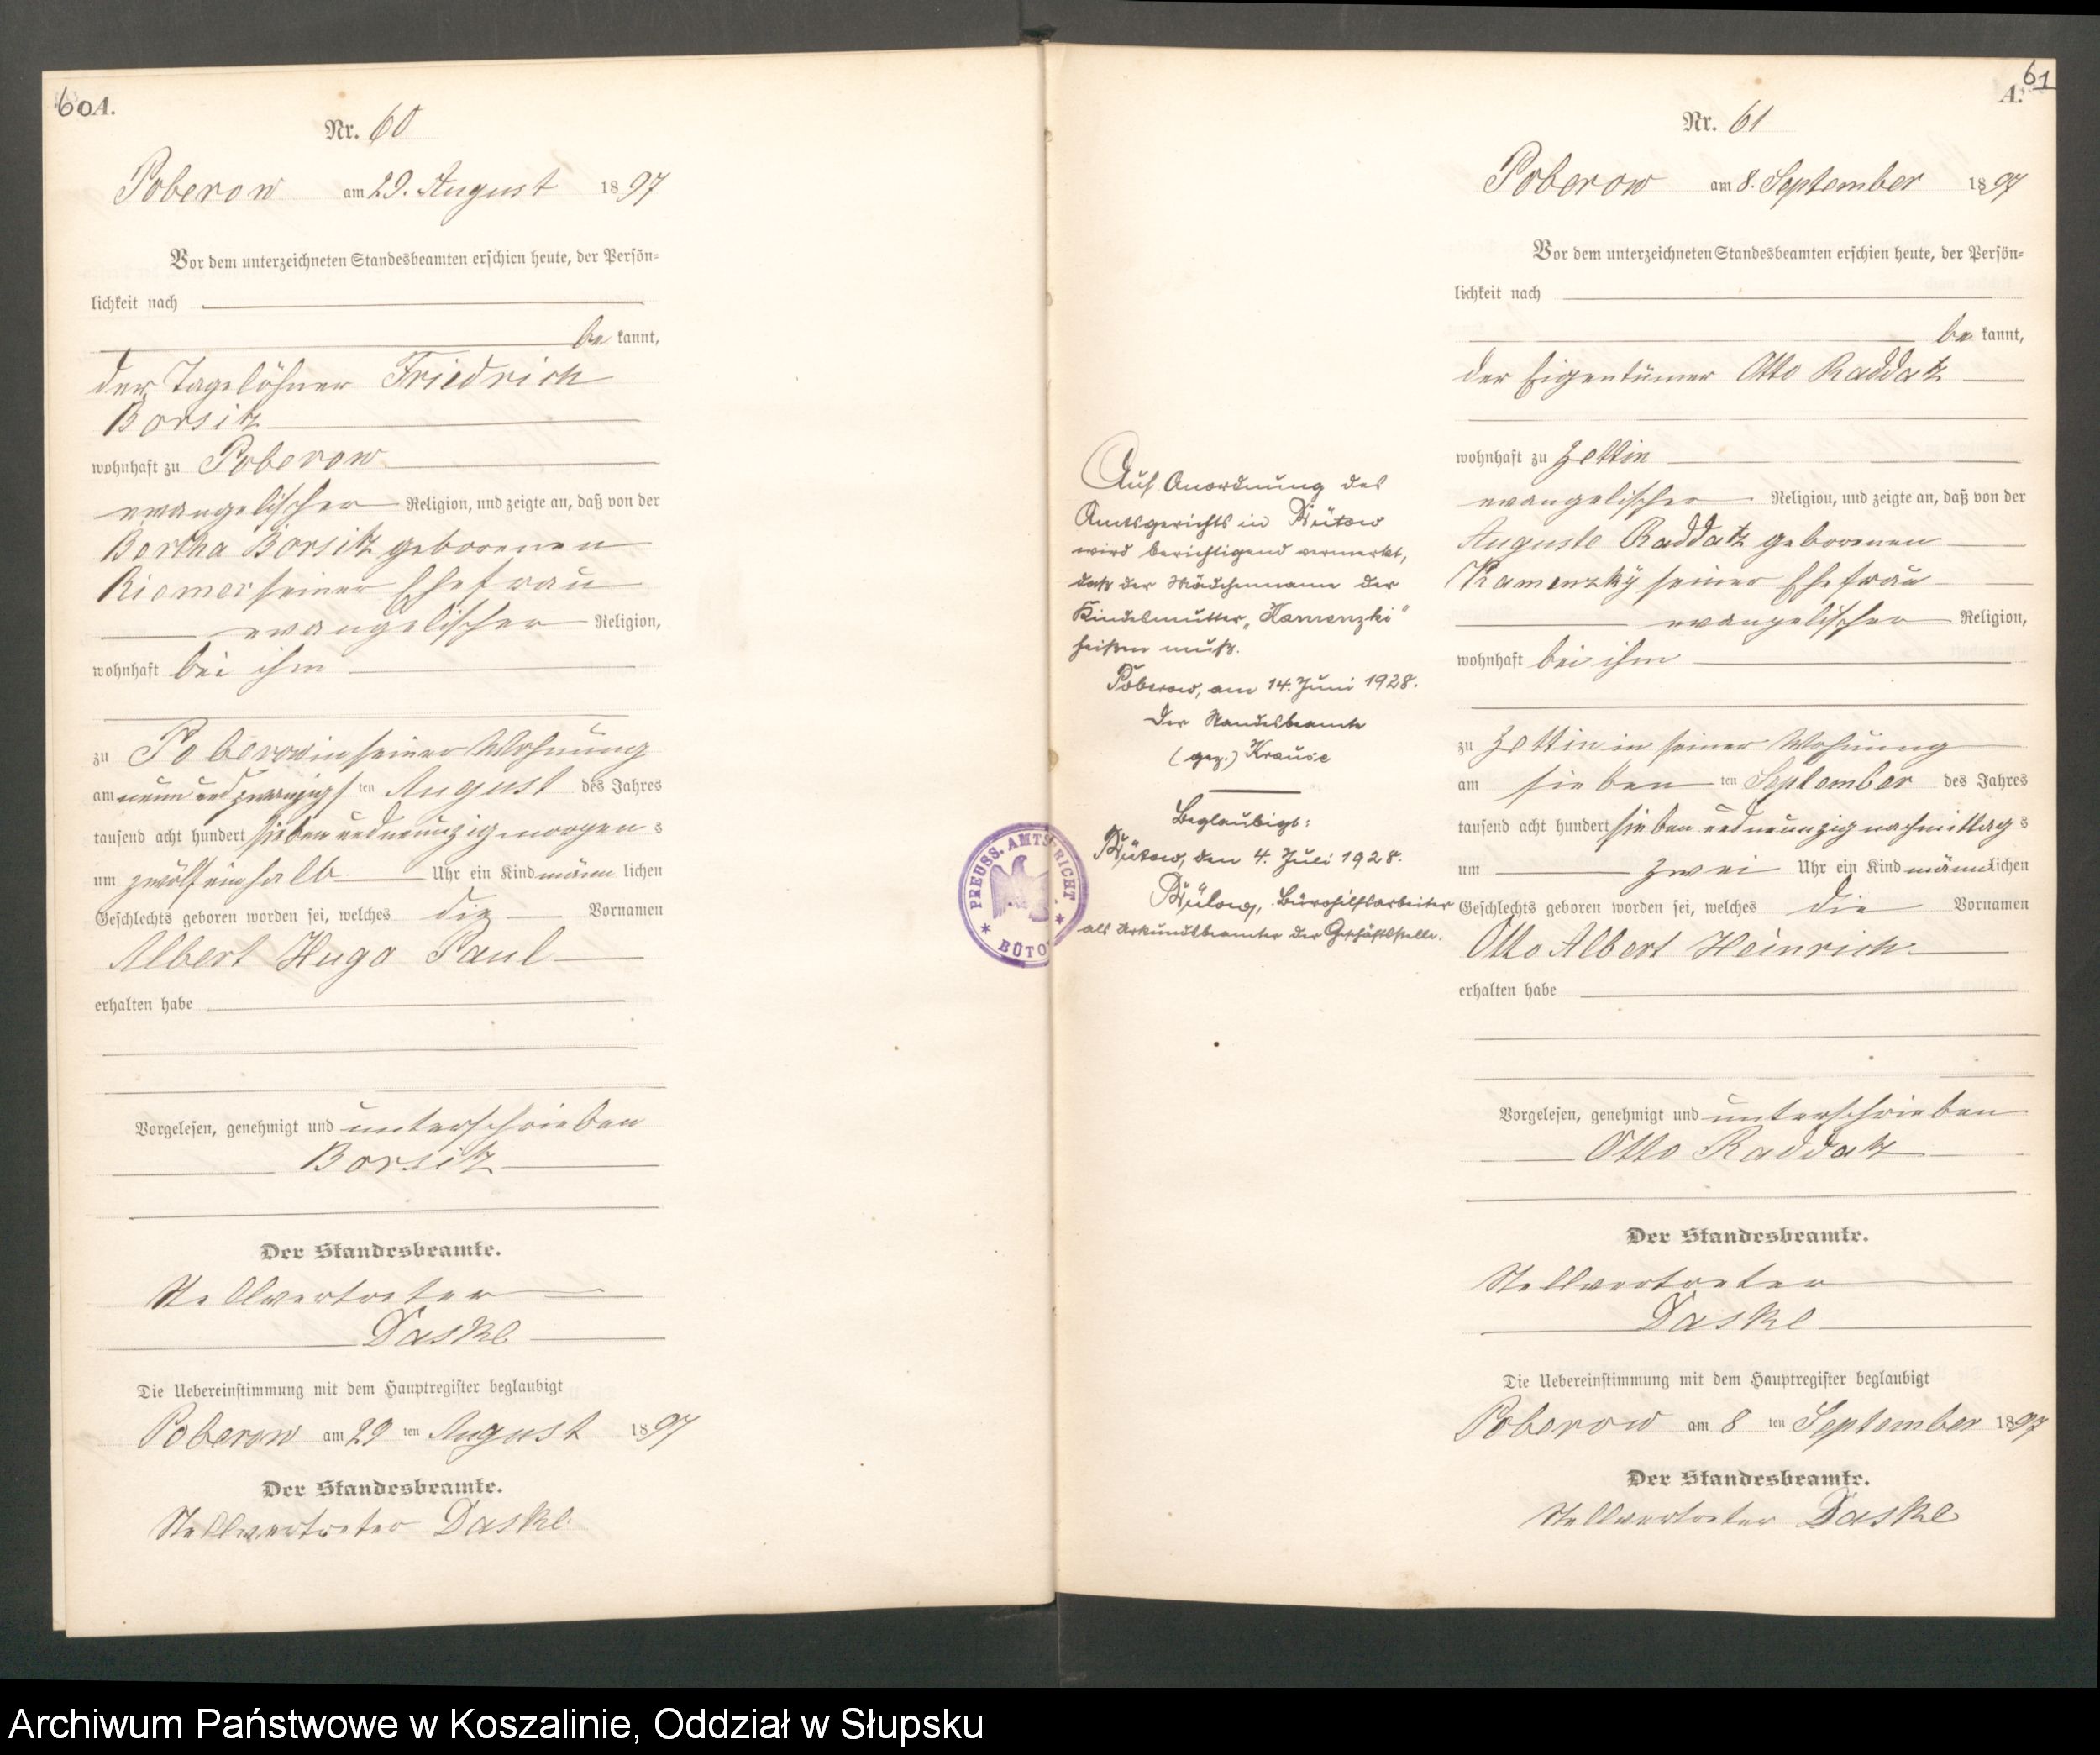 60 A.
Nr. 60
Poberow am 29. August 1897
Vor dem unterzeichneten Standesbeamten erschien heute, der Persön-
lichkeit nach
be kannt,
der Tagelöhner Friedrich
Borsitz
wohnhaft zu Poberow
evangelischer Religion, und zeigte an, daß von der
Bertha Borsitz geborenen
Riemer seiner Ehefrau
evangelischer Religion,
wohnhaft bei ihm
zu Poberow in seiner Wohnung
am neun und zwanzigsten August des Jahres
tausend acht hundert sieben und neunzig morgens
um zwölf einhalb Uhr ein Kind männlichen
Geschlechts geboren worden sei, welches die Vornamen
Albert Hugo Paul
erhalten habe
Vorgelesen, genehmigt und unterschrieben
Borsitz
Der Standesbeamte.
Stellvertreter
Daske
Die Uebereinstimmung mit dem Hauptregister beglaubigt
Poberow am 29 ten August 1897
Der Standesbeamte.
Stellvertreter Daske
Auf Anordnung des
Amtsgerichts in Bütow
wird berichtigend vermerkt,
daß der Mädchenname der
Kindesmutter „Kamenzki"
heißen muß.
Poberow, am 14. Juni 1928.
Der Standesbeamte
(gez.) Krause
Beglaubigt:
Bütow, den 4. Juli 1928.
Bülow, Bürohilfsarbeiter
als Urkundsbeamter der Geschäftsstelle.
PREUSS. AMTS RICHT
* BÜTO *
61
A.
Nr. 61
Poberow am 8. September 1897
Vor dem unterzeichneten Standesbeamten erschien heute, der Persön-
lichkeit nach
be kannt,
der Eigentümer Otto Raddatz
wohnhaft zu Zettin
evangelischer Religion, und zeigte an, daß von der
Auguste Raddatz geborenen
Kamenzky seiner Ehefrau
evangelischer Religion,
wohnhaft bei ihm
zu Zettin in seiner Wohnung
am sieben ten September des Jahres
tausend acht hundert sieben und neunzig nachmittags
um zwei Uhr ein Kind männlichen
Geschlechts geboren worden sei, welches die Vornamen
Otto Albert Heinrich
erhalten habe
Vorgelesen, genehmigt und unterschrieben
Otto Raddatz
Der Standesbeamte.
Stellvertreter
Daske
Die Uebereinstimmung mit dem Hauptregister beglaubigt
Poberow am 8 ten September 1897
Der Standesbeamte.
Stellvertreter Daske
Archiwum Państwowe w Koszalinie, Oddział w Słupsku